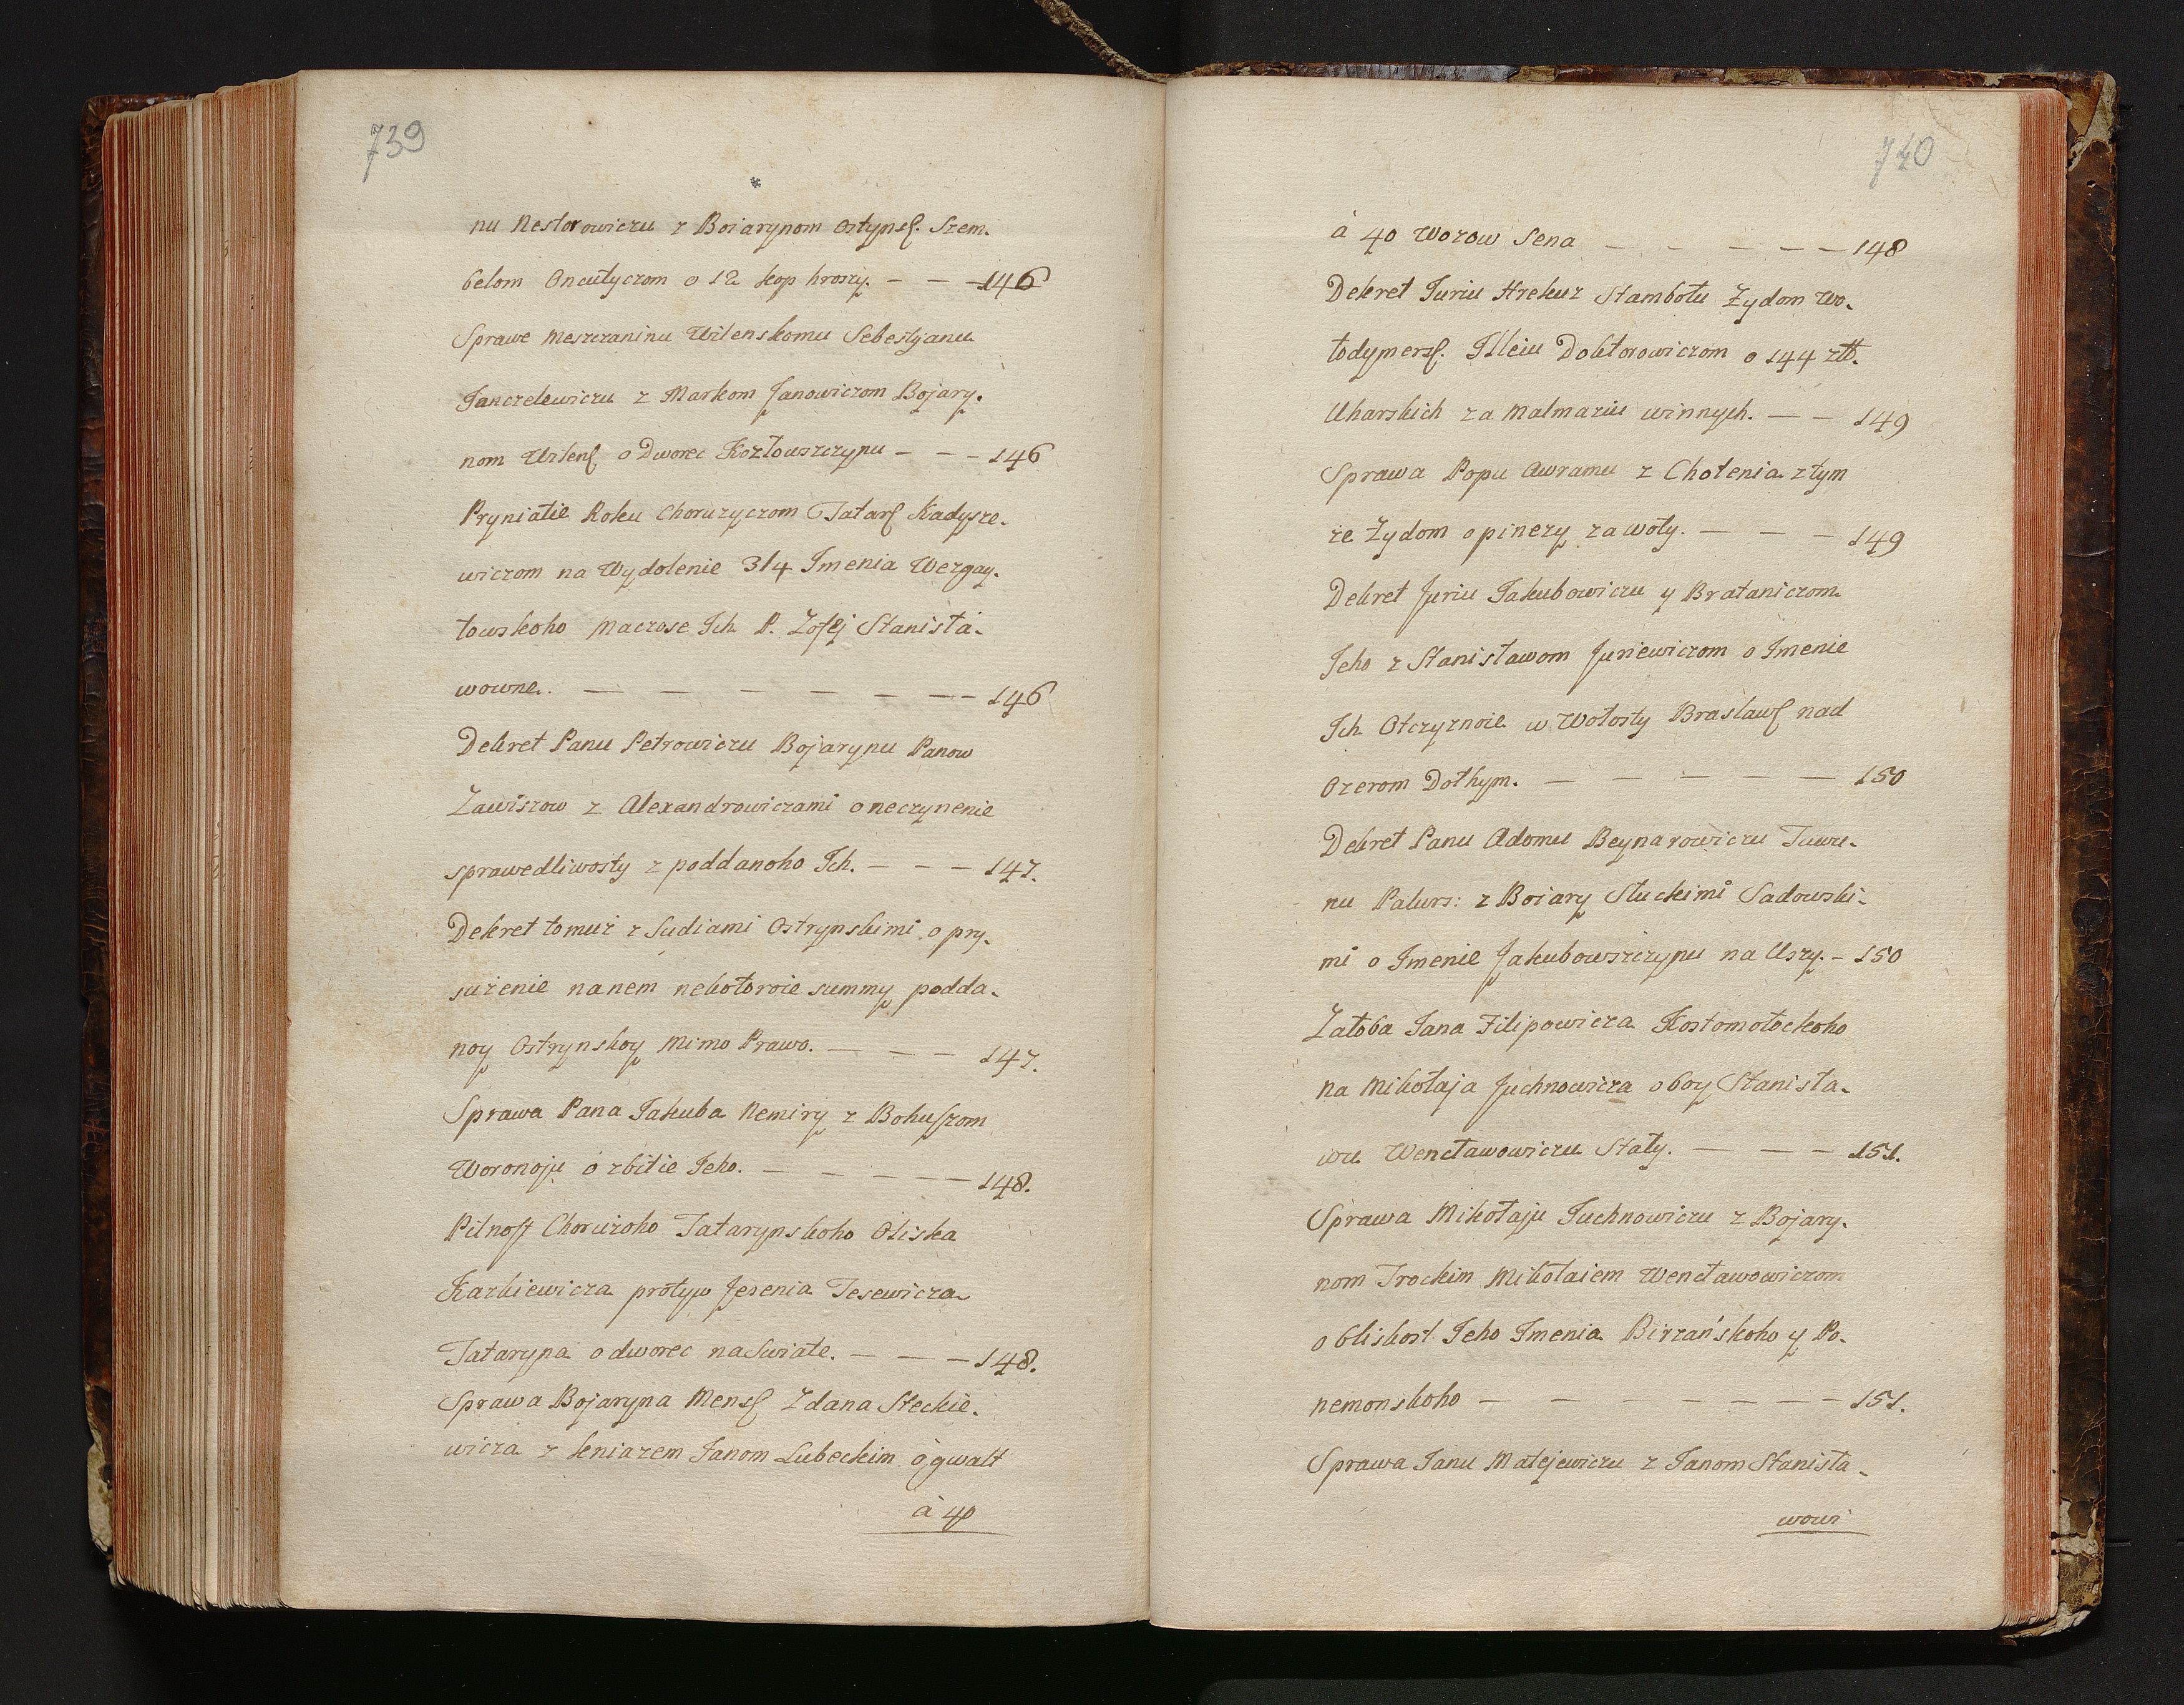 739
nu Nestorowiczu z Boiarynom Ostyns. Szem-
belom Oncutyczom o 12 kop hroszy. — — — 146
Sprawe Meszczaninu Wilenskomu Sebestyanu
Janczelewiczu z Markom Janowiczom Bojary-
nom Wilens o Dworec Kozłowszczynu — — — 146
Pryniatie Roku Choruzyczom Tatars Kadysze-
wiczom na Wydolenie 3/4 Imenia Wezgay-
łowskoho Maczose Ich P. Zofej Stanisła-
wowne. — — — — — — — 146
Dekret Panu Petrowiczu Bojarynu Panow
Zawiszow z Alexandrowiczami o neczynenie
sprawedliwosty z poddanoho Ich. — — — 147.
Dekret tomuż z Sudiami Ostrynskimi o pry-
sużenie na nem nekotoroie summy podda-
noy Ostrynskoy mimo Prawo. — — — 147.
Sprawa Pana Jakuba Nemiry z Bohuszom
Woronoju o zbitie Jeho. — — — — — 148.
Pilnost Chorużoho Tatarynskoho Oliska
Kazkiewicza protyw Jesenia Tesewicza
Tataryna o dworec na Swiate. — — — 148.
Sprawa Bojaryna Mens Zdana Steckie-
wicza z kniazem Janom Lubeckim o gwałt
à 40
740
à 40 Wozow Sena — — — — — — 148
Dekret Juriu Hrekuz Stambołu Żydom Wo-
łodymers. Illeiu Doktorowiczom o 144 złł.
Uharskich za małmaziu winnych. — — 149
Sprawa Popu Awramu z Chotenia z tym
że Żydom o pinezy za woły. — — — 149
Dekret Juriu Jakubowiczu y Brataniczom
Jeho z Stanisławom Juriewiczom o Imenie
Ich Otczyznoie w Wołosty Brasławs nad
Ozerom Dołhym. — — — — — 150
Dekret Panu Adomu Beynarowiczu Tuwu-
nu Palurs: z Boiary Słuckimi Sadowski-
mi o Imenie Jakubowszczynu na Uszy. — 150
Załoba Jana Filipowicza Kostomołockoho
na Mikołaja Juchnowicza o boy Stanisła-
wu Wencławowiczu Stały. — — — 151.
Sprawa Mikołaju Juchnowiczu z Bojary-
nom Trockim Mikołaiem Wencławowiczom
o bliskost Jeho Imenia Birżańskoho y Po-
nemonskoho — — — — — — — 151.
Sprawa Janu Matejewiczu z Janom Stanisła-
wowi